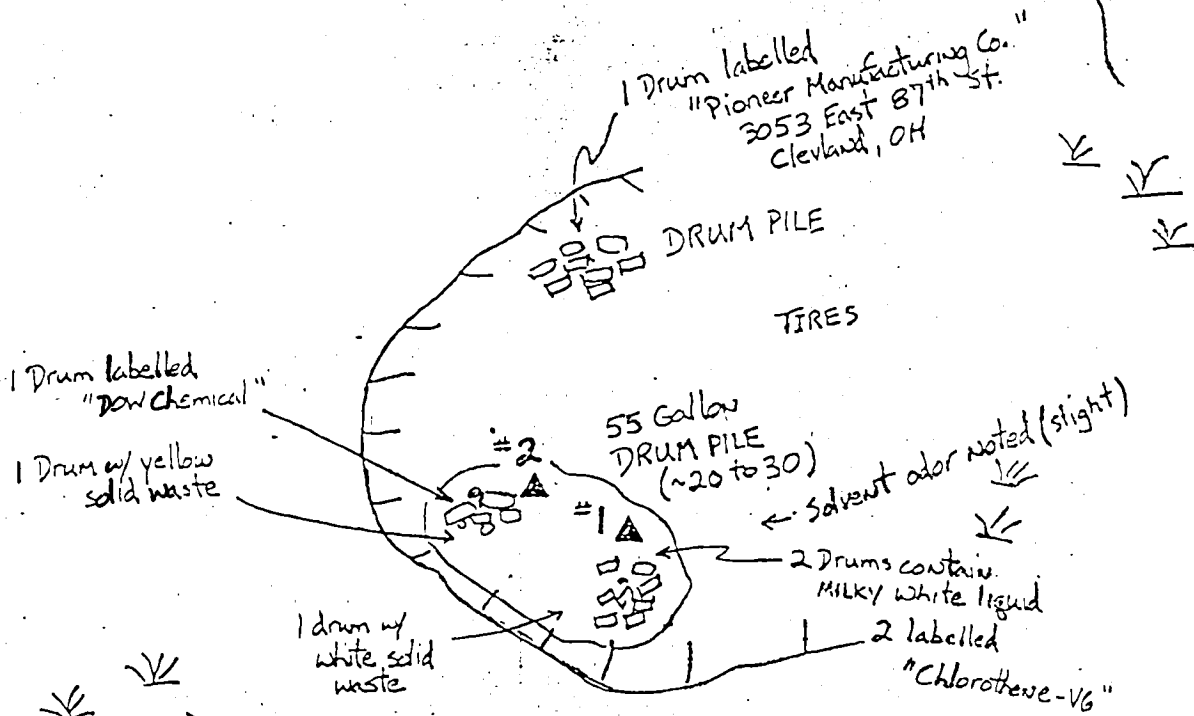 1 Drum labelled
"Pioneer Manufacturing Co."
3053 East 87th St.
Clevland, OH
DRUM PILE
TIRES
1 Drum labelled
"DOW Chemical"
1 Drum w/ yellow
solid waste
#2
55 Gallon
DRUM PILE
(~20 to 30)
#1
← Solvent odor noted (slight)
2 Drums contain
MILKY white liquid
1 drum w/
white solid
waste
2 labelled
"Chlorothene-VG"